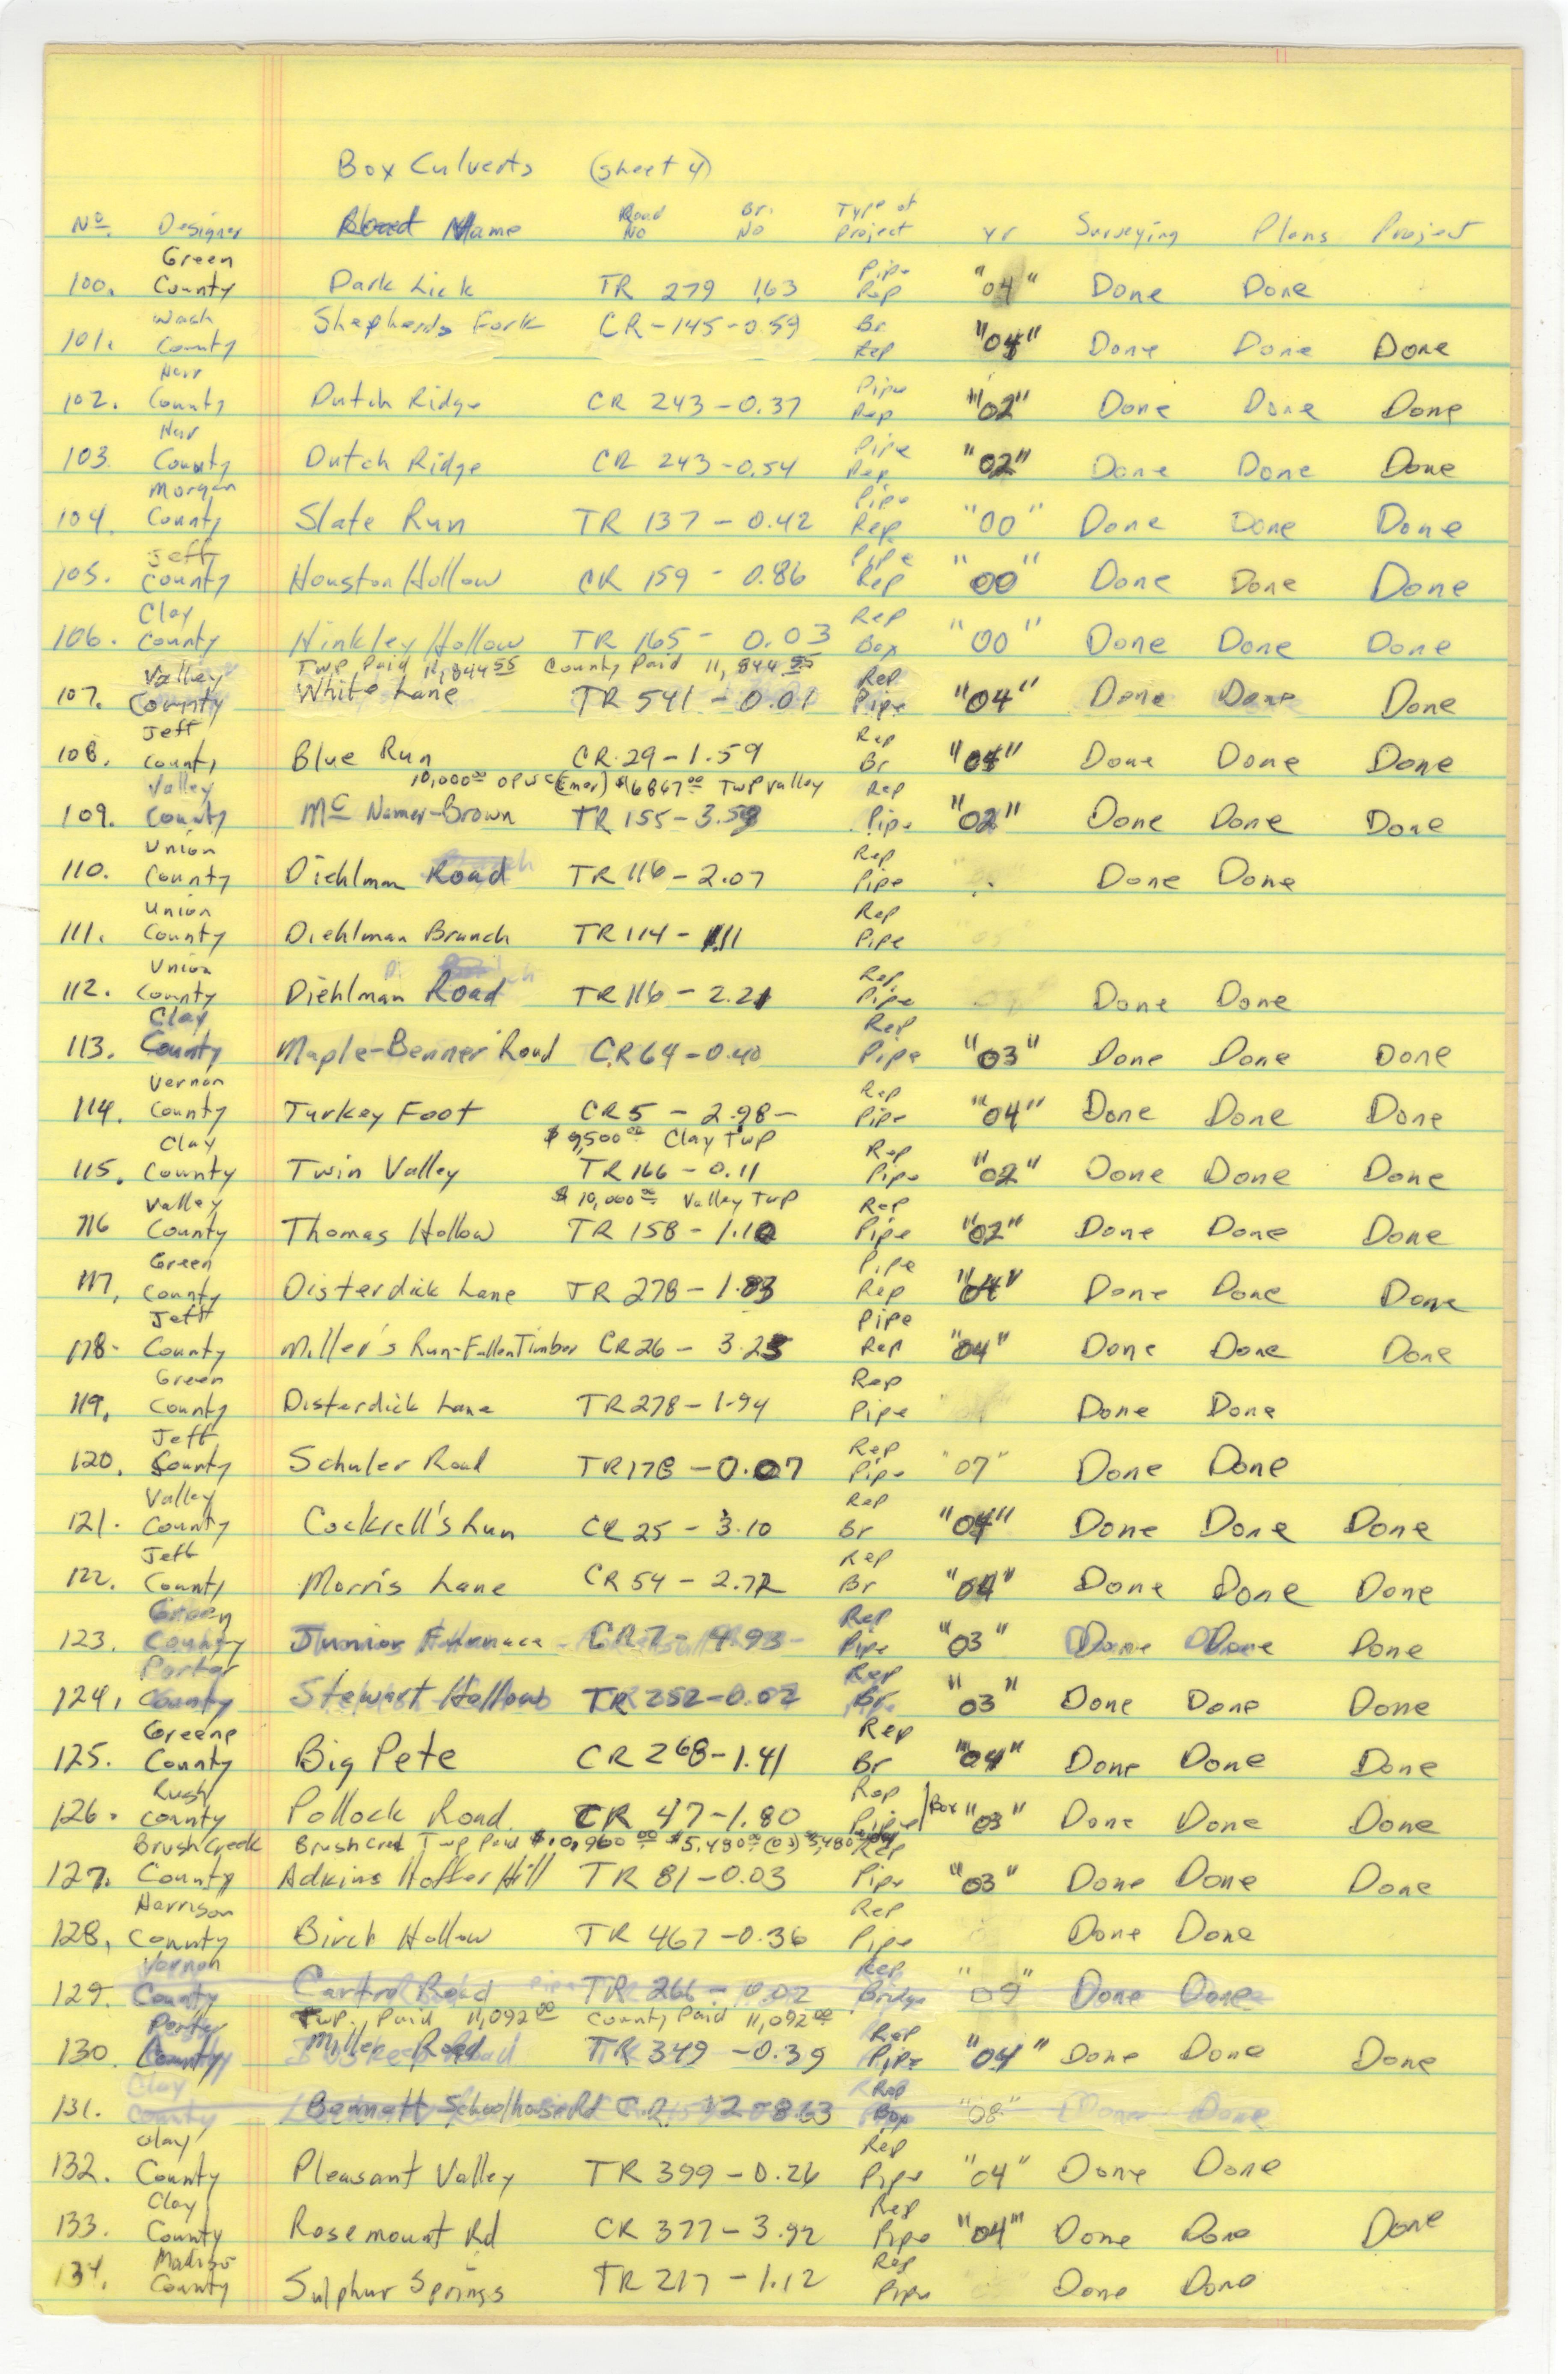 Box Culverts (sheet 4)
No. Designer Name Road No Br. No Type of Project yr Surveying Plans Project
Green Pipe
100. County Dark Lick TR 279 1.63 Rep "04" Done Done
Wash Shepherds Fork CR-145-0.59 Br
101. County Rep "04" Done Done Done
Harr Pipe
102. County Dutch Ridge CR 243-0.37 Rep "02" Done Done Done
Harr Pipe
103. County Dutch Ridge CR 243-0.54 Rep "02" Done Done Done
Morgan Pipe
104. County Slate Run TR 137-0.42 Rep "00" Done Done Done
Jeff Pipe
105. County Houston Hollow CR 159-0.86 Rep "00" Done Done Done
Clay Rep
106. County Hinkley Hollow TR 165-0.03 Box "00" Done Done Done
Valley Twp Paid 11,844.55 County Paid 11,844.55 Rep
107. County White Lane TR 541-0.01 Pipe "04" Done Done Done
Jeff Rep
108. County Blue Run CR 29-1.59 Br "04" Done Done Done
Valley 10,000.00 OPWC (Emer) $16867.00 Twp Valley Rep
109. County Mc Namer-Brown TR 155-3.58 Pipe "02" Done Done Done
Union Rep
110. County Diehlman Road TR 116-2.07 Pipe Done Done
Union Rep
111. County Diehlman Branch TR 114-1.11 Pipe
Union Rep
112. County Diehlman Road TR 116-2.21 Pipe Done Done
Clay Rep
113. County Maple-Benner Road CR 64-0.40 Pipe "03" Done Done Done
Vernon Rep
114. County Turkey Foot CR 5-2.98- Pipe "04" Done Done Done
Clay $9,500.00 Clay Twp Rep
115. County Twin Valley TR 166-0.11 Pipe "02" Done Done Done
Valley $10,000.00 Valley Twp Rep
116 County Thomas Hollow TR 158-1.10 Pipe "02" Done Done Done
Green Pipe
117. County Disterdick Lane TR 278-1.83 Rep "04" Done Done Done
Jeff Pipe
118- County Miller's Run-Fallen Timber CR 26-3.25 Rep "04" Done Done Done
Green Rep
119. County Disterdick Lane TR 278-1.94 Pipe Done Done
Jeff Rep
120. County Schuler Road TR 178-0.07 Pipe "07" Done Done
Valley Rep
121. County Cockrell's Run CR 25-3.10 Br "04" Done Done Done
Jeff Rep
122. County Morris Lane CR 54-2.72 Br "04" Done Done Done
Green Rep
123. County Junior Furnace CR 7-4.93- Pipe "03" Done Done Done
Porter Rep
124. County Stewart Hollow TR 252-0.02 Br "03" Done Done Done
Greene Rep
125. County Big Pete CR 268-1.41 Br "04" Done Done Done
Rush Rep
126. County Pollock Road CR 47-1.80 Pipe/Box "03" Done Done Done
Brush Creek Brush Creek Twp Paid $10,960.00 $5,480.00 (03) Rep
127. County Adkins Hoffer Hill TR 81-0.03 Pipe "03" Done Done Done
Harrison Rep
128. County Birch Hollow TR 467-0.36 Pipe Done Done
Vernon Rep
129. County Road TR 266-0.02 Bridge "09" Done Done
Porter Twp. Paid 11,092.00 County Paid 11,092.00 Rep
130. County Miller Road TR 349-0.39 Pipe "04" Done Done Done
Clay Rep
131. County Bennett Schoolhouse Rd Box "08" Done Done
Clay Rep
132. County Pleasant Valley TR 399-0.26 Pipe "04" Done Done
Clay Rep
133. County Rosemount Rd CR 377-3.92 Pipe "04" Done Done Done
Madison Rep
134. County Sulphur Springs TR 217-1.12 Pipe Done Done